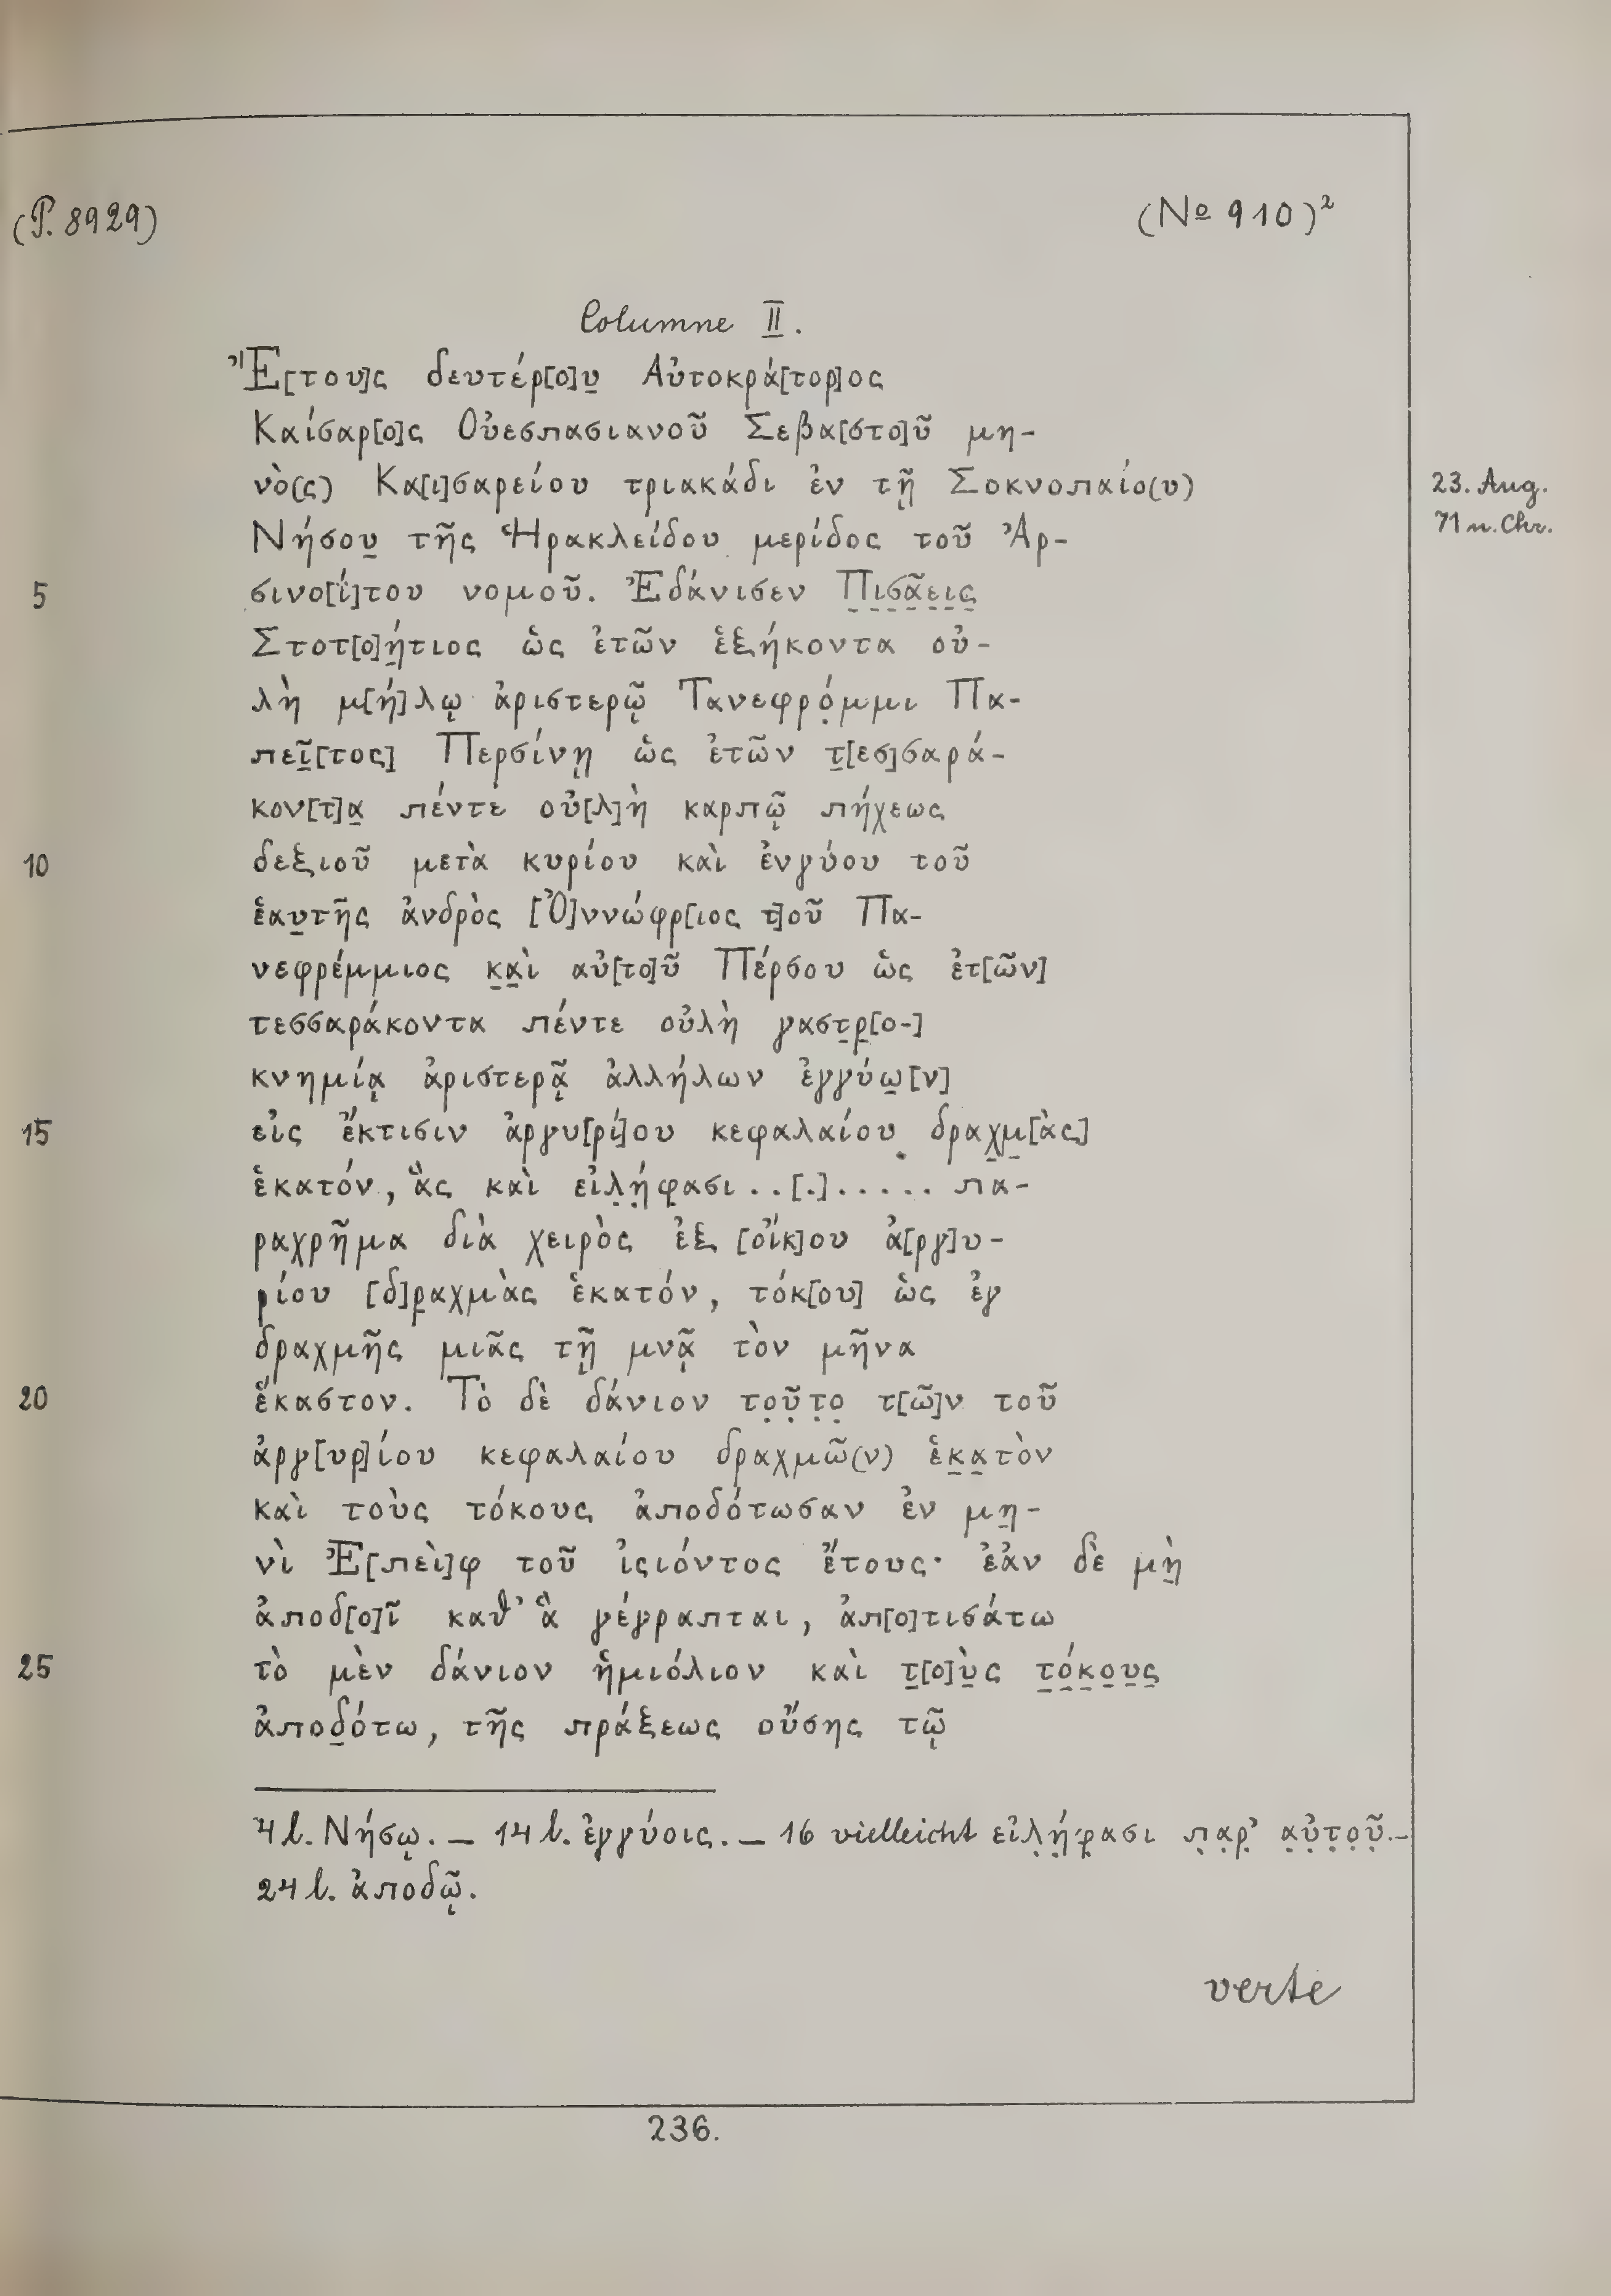 (P. 8929) (Nº 910)²
Columne II.
Ἔ[του]ς δευτέρ[ο]υ̣ Αὐτοκρά[τορ]ος
Καίσαρ[ο]ς Οὐεσπασιανοῦ Σεβα[στο]ῦ μη-
νὸ(ς) Κα[ι]σαρείου τριακάδι ἐν τῇ Σοκνοπαίο(υ) 23. Aug.
Νήσου̣ τῆς Ἡρακλείδου μερίδος τοῦ Ἀρ- 71 n. Chr.
5 σινο[ΐ]του νομοῦ. Ἐδάνισεν Π̣ι̣σ̣ᾶ̣ε̣ι̣ς̣
Στοτ[ο]ή̣τιος ὡς ἐτῶν ἑξήκοντα οὐ-
λὴ μ[ή]λῳ ἀριστερῷ Τανεφρό̣μμι Πα-
πεῖ̣[τος] Περσίνῃ ὡς ἐτῶν τ̣[εσ]σαρά-
κον[τ]α̣ πέντε οὐ[λ]ὴ καρπῷ πήχεως
10 δεξιοῦ μετὰ κυρίου καὶ ἐνγύου τοῦ
ἑαυ̣τῆς ἀνδρὸς [Ὀ]ννώφρ[ιος τ]οῦ Πα-
νεφρέμμιος κ̣α̣ὶ αὐ[το]ῦ Πέρσου ὡς ἐτ[ῶν]
τεσσαράκοντα πέντε οὐλὴ γαστ̣ρ̣[ο-]
κνημίᾳ ἀριστερᾷ ἀλλήλων ἐγγύω̣[ν]
15 εἰς ἔκτισιν ἀργυ[ρί]ου κεφαλαίου δραχ̣μ̣[ὰς]
ἑκατόν, ἃς καὶ εἰλ̣ή̣φ̣ασι . . [.] . . . . . πα-
ραχρῆμα διὰ χειρὸς ἐξ [οἴκ]ου ἀ[ργ]υ-
ρίου [δ]ρ̣αχμὰς ἑκατόν, τόκ[ου] ὡς ἐγ
δραχμῆς μιᾶς τῇ μνᾷ τὸν μῆνα
20 ἕκαστον. Τὸ δὲ δάνιον τ̣ο̣ῦ̣τ̣ο̣ τ[ῶ]ν τοῦ
ἀργ[υρ]ίου κεφαλαίου δραχμῶ(ν) ἑκ̣α̣τὸν
καὶ τοὺς τόκους ἀποδότωσαν ἐν μη̣-
νὶ Ἐ[πεὶ]φ τοῦ ἰςιόντος ἔτους· ἐὰν δὲ μὴ̣
ἀποδ[ο]ῖ καθ’ ἃ γέγραπται, ἀπ[ο]τισάτω
25 τὸ μὲν δάνιον ἡμιόλιον καὶ τ̣[ο]ὺ̣ς τ̣ό̣κ̣ο̣υ̣ς̣
ἀποδ̣ότω, τῆς πράξεως οὔσης τῷ
4 l. Νήσῳ. — 14 l. ἐγγύοις. — 16 vielleicht εἰλ̣ή̣φ̣ασι π̣α̣ρ̣’ α̣ὐ̣τ̣ο̣ῦ̣. —
24 l. ἀποδῷ.
verte
236.